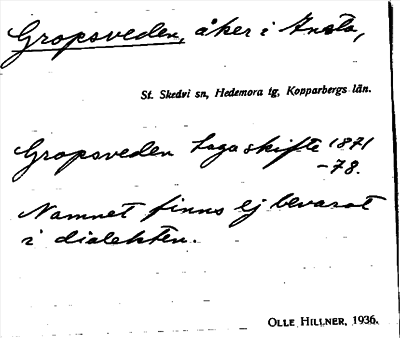 Gropsveden, åker i Ansta,
St. Skedvi sn, Hedemora tg, Kopparbergs län.
Gropsveden Laga skifte 1871
-78.
Namnet finns ej bevarat
i dialekten.
OLLE HILLNER, 1936.